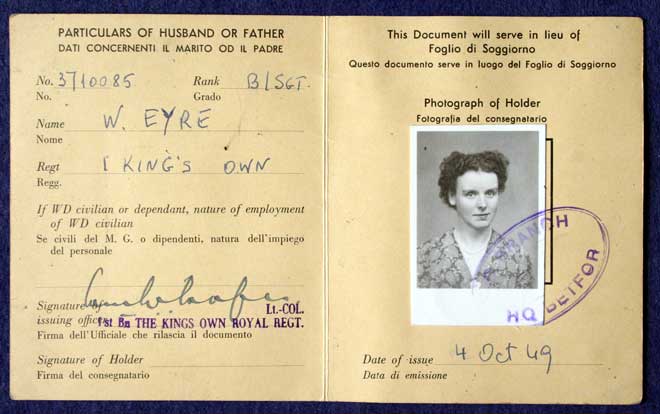 PARTICULARS OF HUSBAND OR FATHER
DATI CONCERNENTI IL MARITO OD IL PADRE
No. 3710085 Rank B/SGT.
No. Grado
Name W. EYRE
Nome
Regt 1 KING'S OWN
Regg.
If WD civilian or dependant, nature of employment
of WD civilian
Se civili del M. G. o dipendenti, natura dell'impiego
del personale
Signature of Lt-COL.
issuing officer 1st Bn THE KINGS OWN ROYAL REGT.
Firma dell'Ufficiale che rilascia il documento
Signature of Holder
Firma del consegnatario
This Document will serve in lieu of
Foglio di Soggiorno
Questo documento serve in luogo del Foglio di Soggiorno
Photograph of Holder
Fotografia del consegnatario
BRANCH
HQ BETFOR
Date of issue 4 Oct 49
Data di emissione